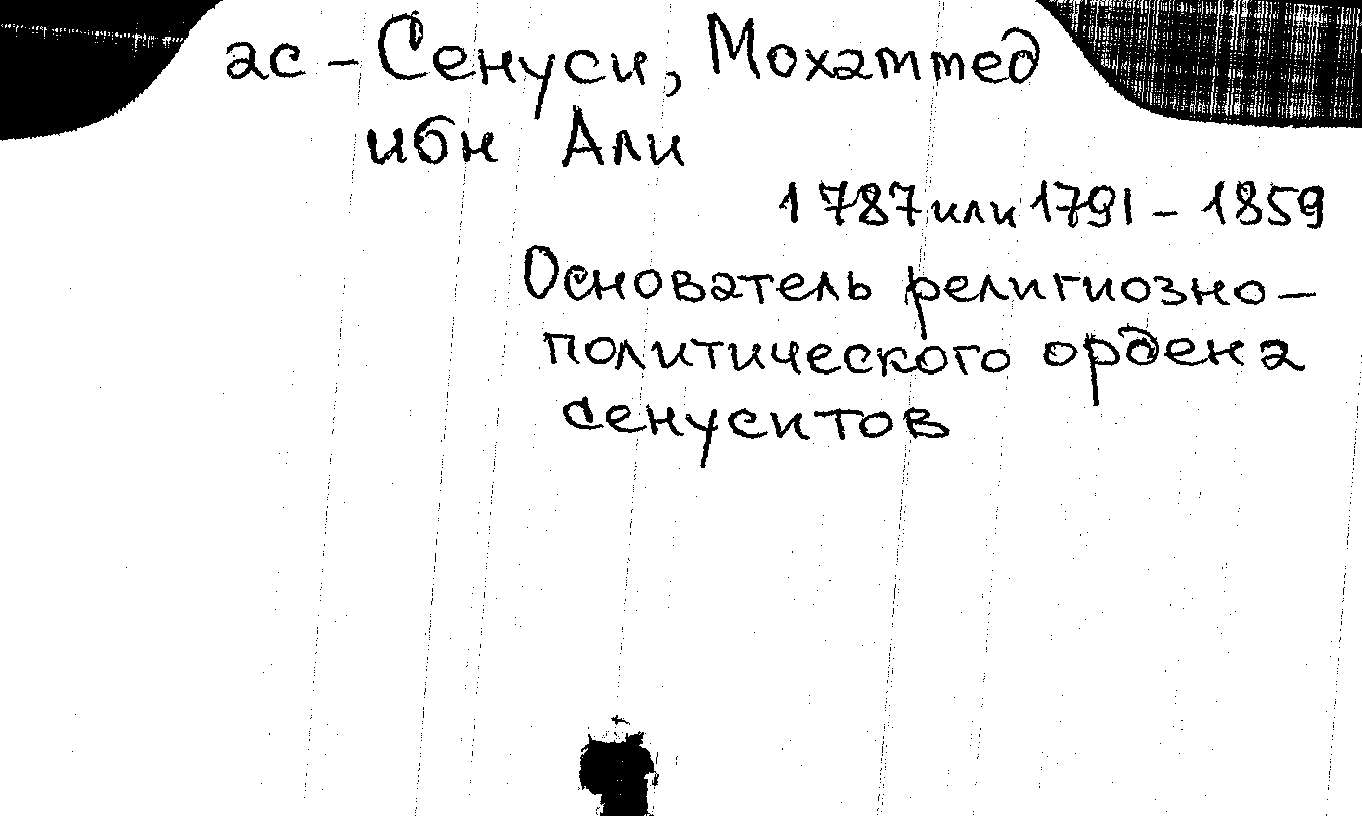 ас-Сенуси, Мохаммед
ибн Али
1787 или 1791 - 1859
Основатель религиозно-
политического ордена
сенуситов